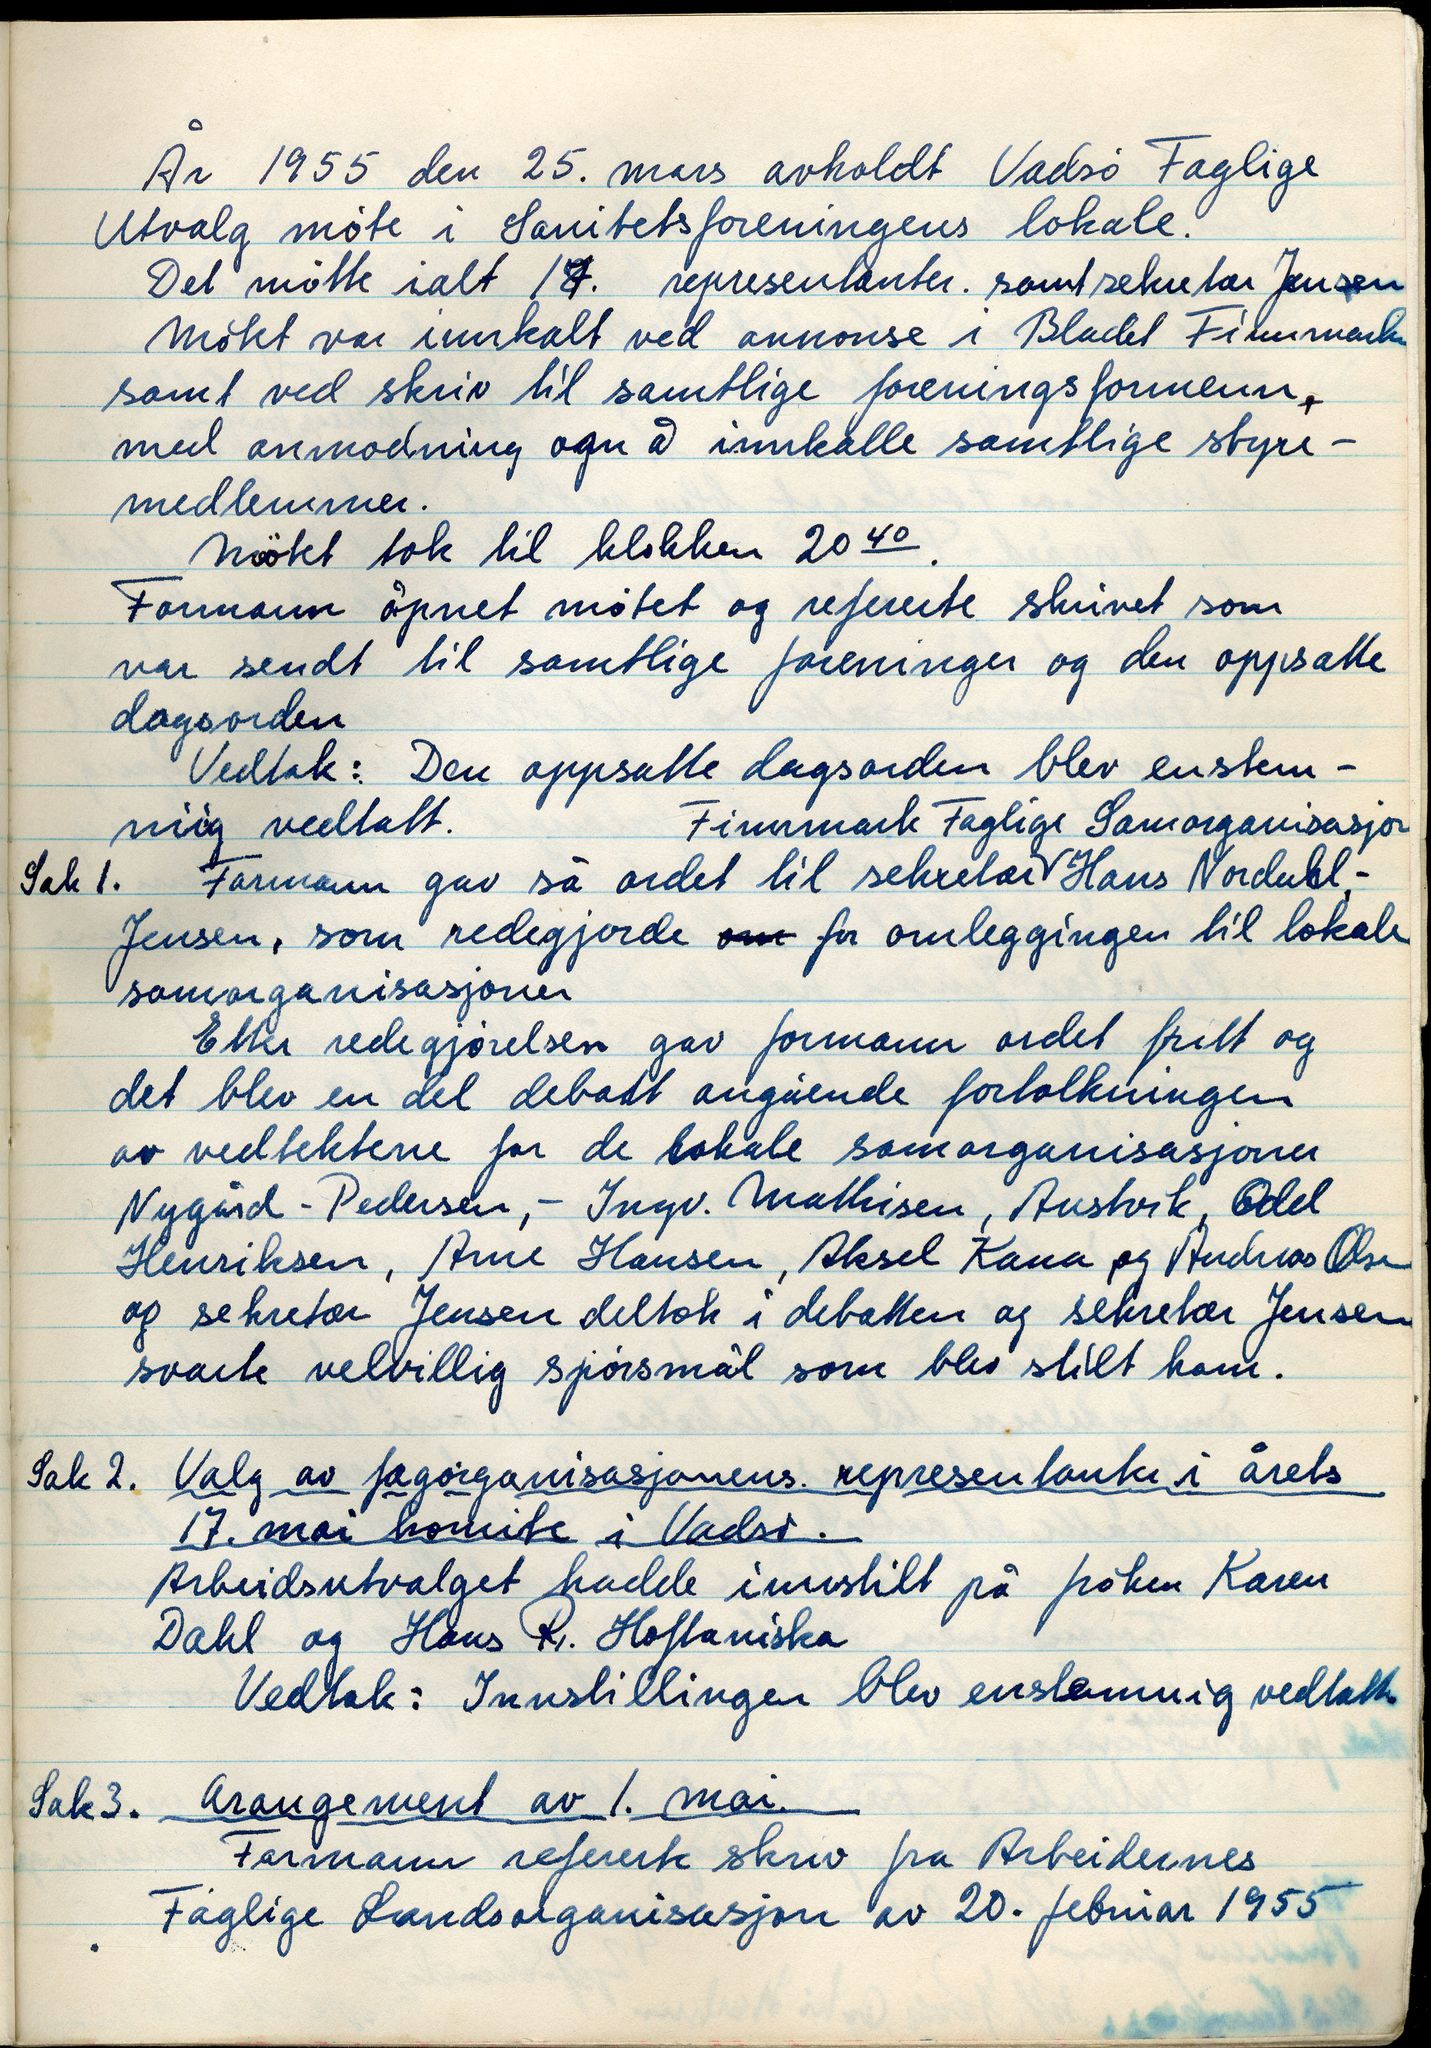 År 1955 den 25. mars avholdt Vadsö Faglige
Utvalg möte i Sanitetsforeningens lokale.
Det mötte ialt 17. representanter. samt sekretær Jensen
Mötet var innkalt ved annonse i Bladet Finnmark
samt ved skriv til samtlige foreningsformenn,
med anmodning ogn å innkalle samtlige styre-
medlemmer.
Mötet tok til klokken 20 40.
Formann åpnet mötet og refererte skrivet som
var sendt til samtlige foreninger og den oppsatte
dagsorden
Vedtak: Den oppsatte dagsorden blev enstem-
mig vedtatt.
Sak 1. Formann gav så ordet til sekretær Finnmark Faglige Samorganisasjon Hans Nordahl-
Jensen, som redegjorde om for omleggingen til lokale
samorganisasjoner
Etter redegjörelsen gav formann ordet fritt og
det blev en del debatt angående fortolkningen
av vedtektene for de lokale samorganisasjoner
Nygård-Pedersen,- Ingv. Mathisen, Austvik, Odd
Henriksen, Arne Hansen, Aksel Kana og Andreas Olsen
og sekretær Jensen deltok i debatten og sekretær Jensen
svarte velvillig spörsmål som blev stilt ham.
Sak 2. Valg av fagorganisasjonens representanter i årets
17. mai komite i Vadsö.
Arbeidsutvalget hadde innstilt på fröken Karen
Dahl og Hans R. Hoftaniska
Vedtak: Innstillingen blev enstemmig vedtatt
Sak 3. Arangement av 1. mai.
Formann refererte skriv fra Arbeidernes
Faglige Landsorganisasjon av 20. februar 1955